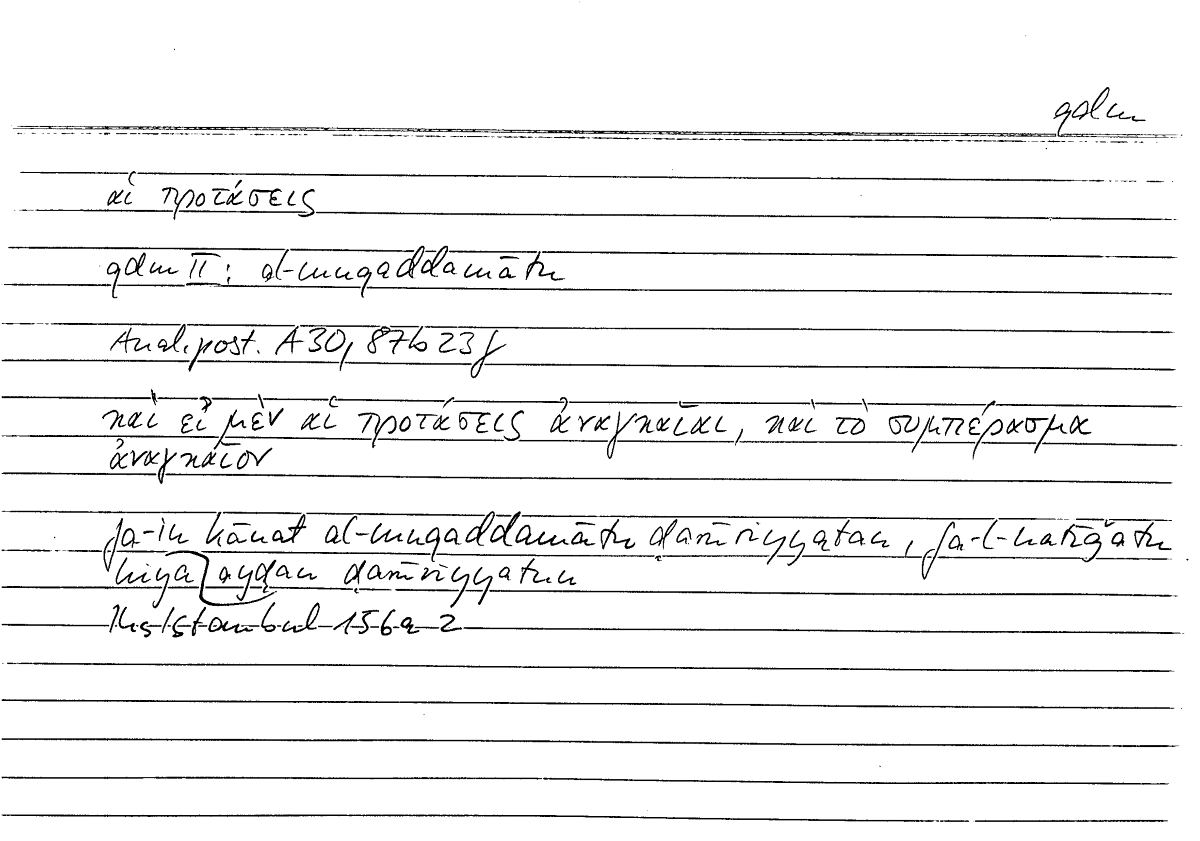 qdm
αἱ προτάσεις
qdm II: al-muqaddamātu
Anal.post. A30, 87b23f
καὶ εἰ μὲν αἱ προτάσεις ἀναγκαῖαι, καὶ τὸ συμπέρασμα
ἀναγκαῖον
fa-in kānat al-muqaddamātu ḍarūriyyatan, fa-l-natīǧatu
hiya ayḍan ḍarūriyyatun
Hs Istanbul 156a 2